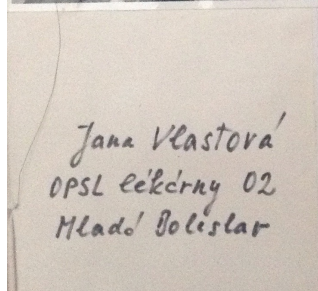 Jana Vlastová
OPSL lékárny 02
Mladá Boleslav